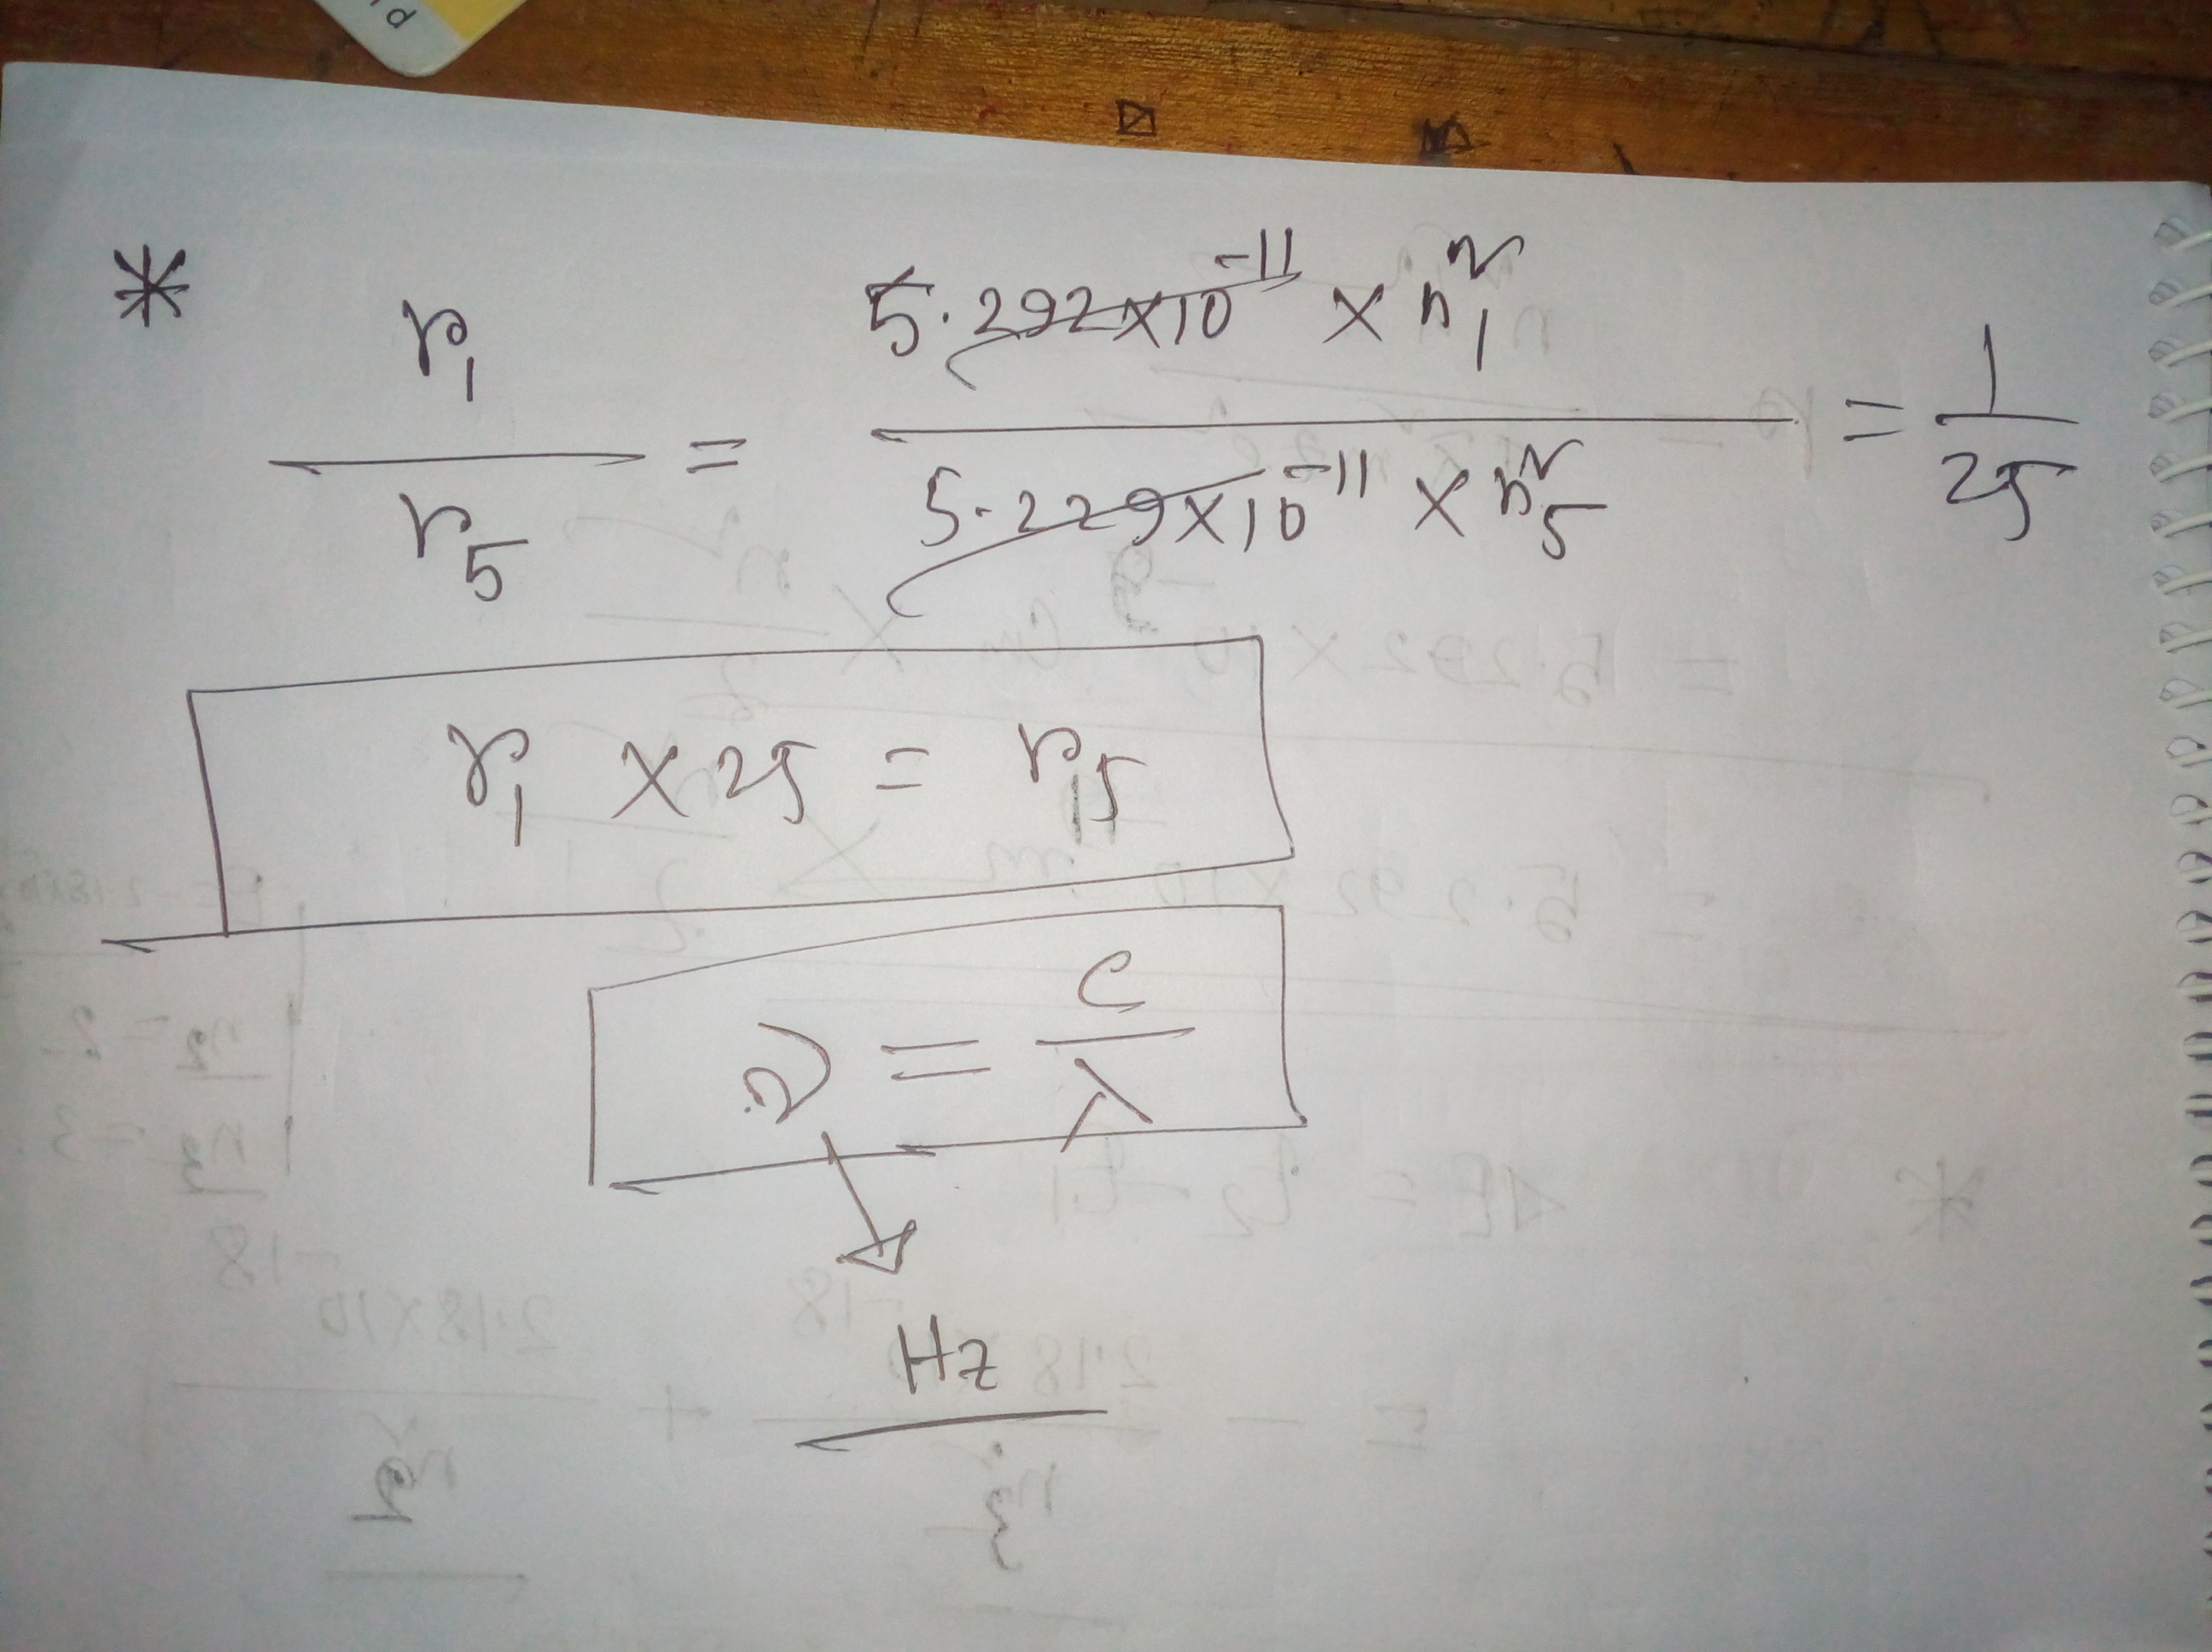 * r₁ / r₅ = 5.292×10⁻¹¹ × n₁² / 5.229×10⁻¹¹ × n₅² = 1/25
r₁ × 25 = r₅
ν = c/λ
Hz